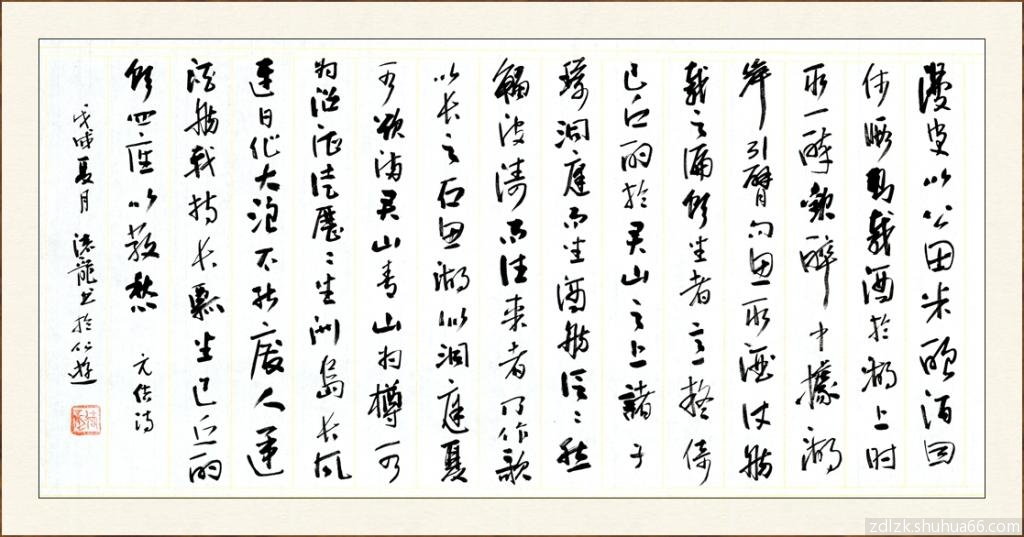 漫叟以公田米酿酒因
休暇则載酒於湖上时
取一醉歡醉中據湖
岸引臂向鱼取酒使舫
載之遍饮坐者意擬倚
巴丘酌於君山之上諸子
環洞庭而坐酒舫泛泛然
觸波涛而往来者乃作歌
以长之石鱼湖似洞庭夏
水欲满君山青山为樽水
为沼酒徒歷歷坐洲岛长风
连日作大浪不能废人运
酒舫我持长瓢坐巴丘酌
饮四座以散愁 元结诗
戊戌夏月 龍书於仙遊
zdlzk.shuhua66.com